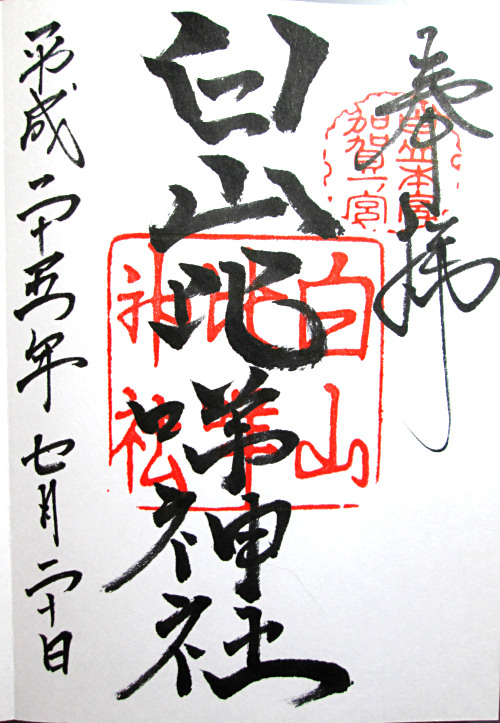 奉拝
白山本宮
加賀一宮
白山比咩神社
白山
比咩
神社
平成二十五年七月二十日